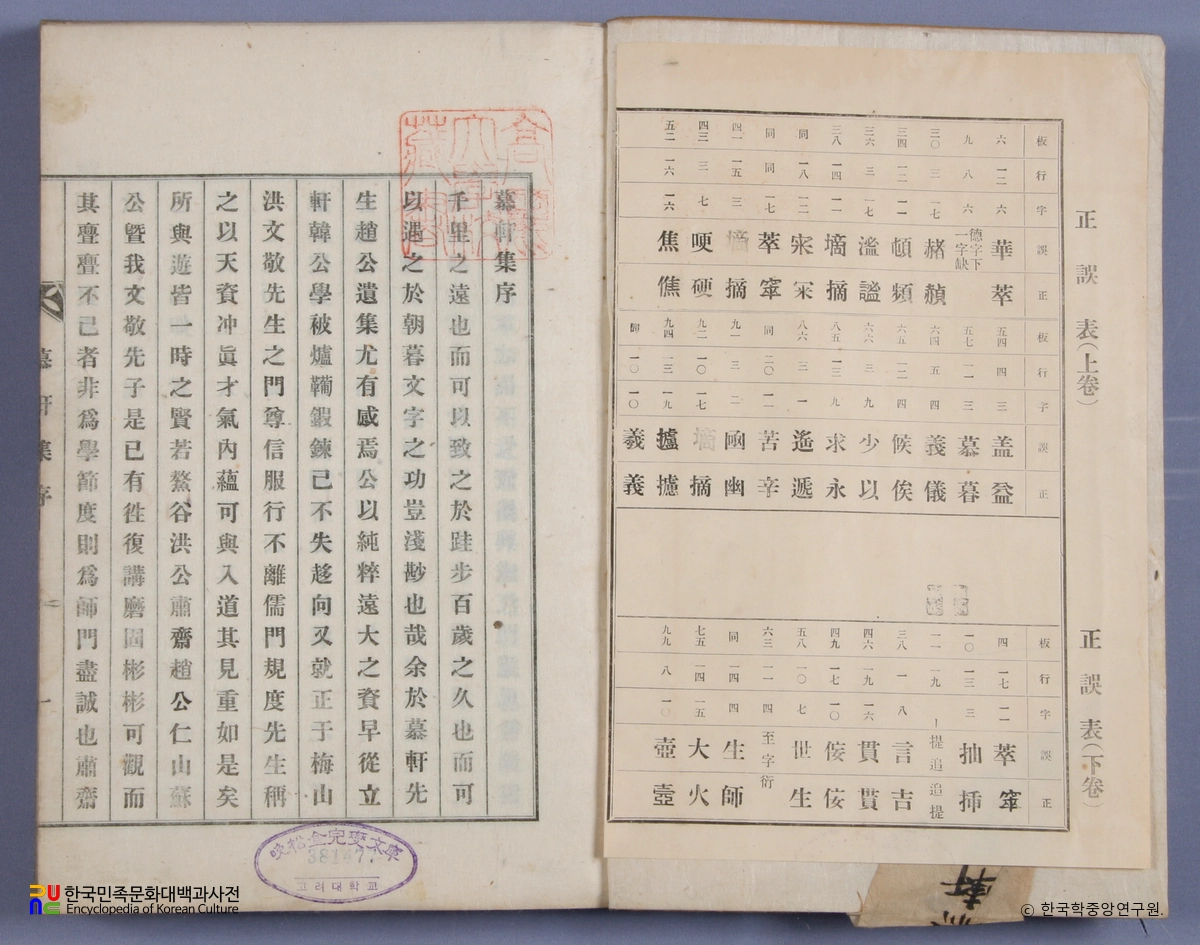 正誤表(上卷)
板 行 字 誤 正
六 一二 六 華 萃
九 八 六 德字下一字缺
三〇 三 一七 赭 赬
三四 一二 一一 頓 頻
三六 三 一七 濫 謐
三八 一四 一一 墑 摘
同 一八 一二 宋 罙
同 同 一七 萃 窣
四一 一五 三 墑 摘
四三 三 七 哽 硬
五二 一六 一六 焦 僬
板 行 字 誤 正
五四 四 三 盖 益
五七 一一 三 慕 暮
六四 五 四 義 儀
六五 一二 四 候 俟
六六 三 九 少 以
八五 一三 九 求 永
八六 三 一 遙 遞
同 二〇 一一 苦 辛
九一 三 二 凾 幽
九二 一〇 一七 墑 摘
九四 一三 一九 攎 攄
一〇 一〇 羲 義
正誤表(下卷)
板 行 字 誤 正
四 一七 一一 萃 窣
一〇 一三 三 抽 揷
一一 一九 提追 追提
三八 一 八 言 吉
四六 一九 一六 貫 貰
四九 一七 一〇 侫 佞
五八 一〇 七 世 生
六三 一一 四 至字衍
同 一四 四 生 師
七五 一四 一五 大 火
九九 八 一〇 壺 壼
慕軒集序
千里之遠也而可以致之於跬步百歲之久也而可
以遇之於朝暮文字之功豈淺尠也哉余於慕軒先
生趙公遺集尤有感焉公以純粹遠大之資早從立
軒韓公學被爐鞴鍛鍊已不失趍向又就正于梅山
洪文敬先生之門尊信服行不離儒門規度先生稱
之以天資冲眞才氣內蘊可與入道其見重如是矣
所與遊皆一時之賢若鰲谷洪公肅齋趙公仁山蘇
公曁我文敬先子是已有徃復講磨固彬彬可觀而
其亹亹不已者非爲學節度則爲師門盡誠也肅齋
慕軒集序
一
晩松金完燮文庫
381477
고려대학교
한국민족문화대백과사전
Encyclopedia of Korean Culture
軒
© 한국학중앙연구원.